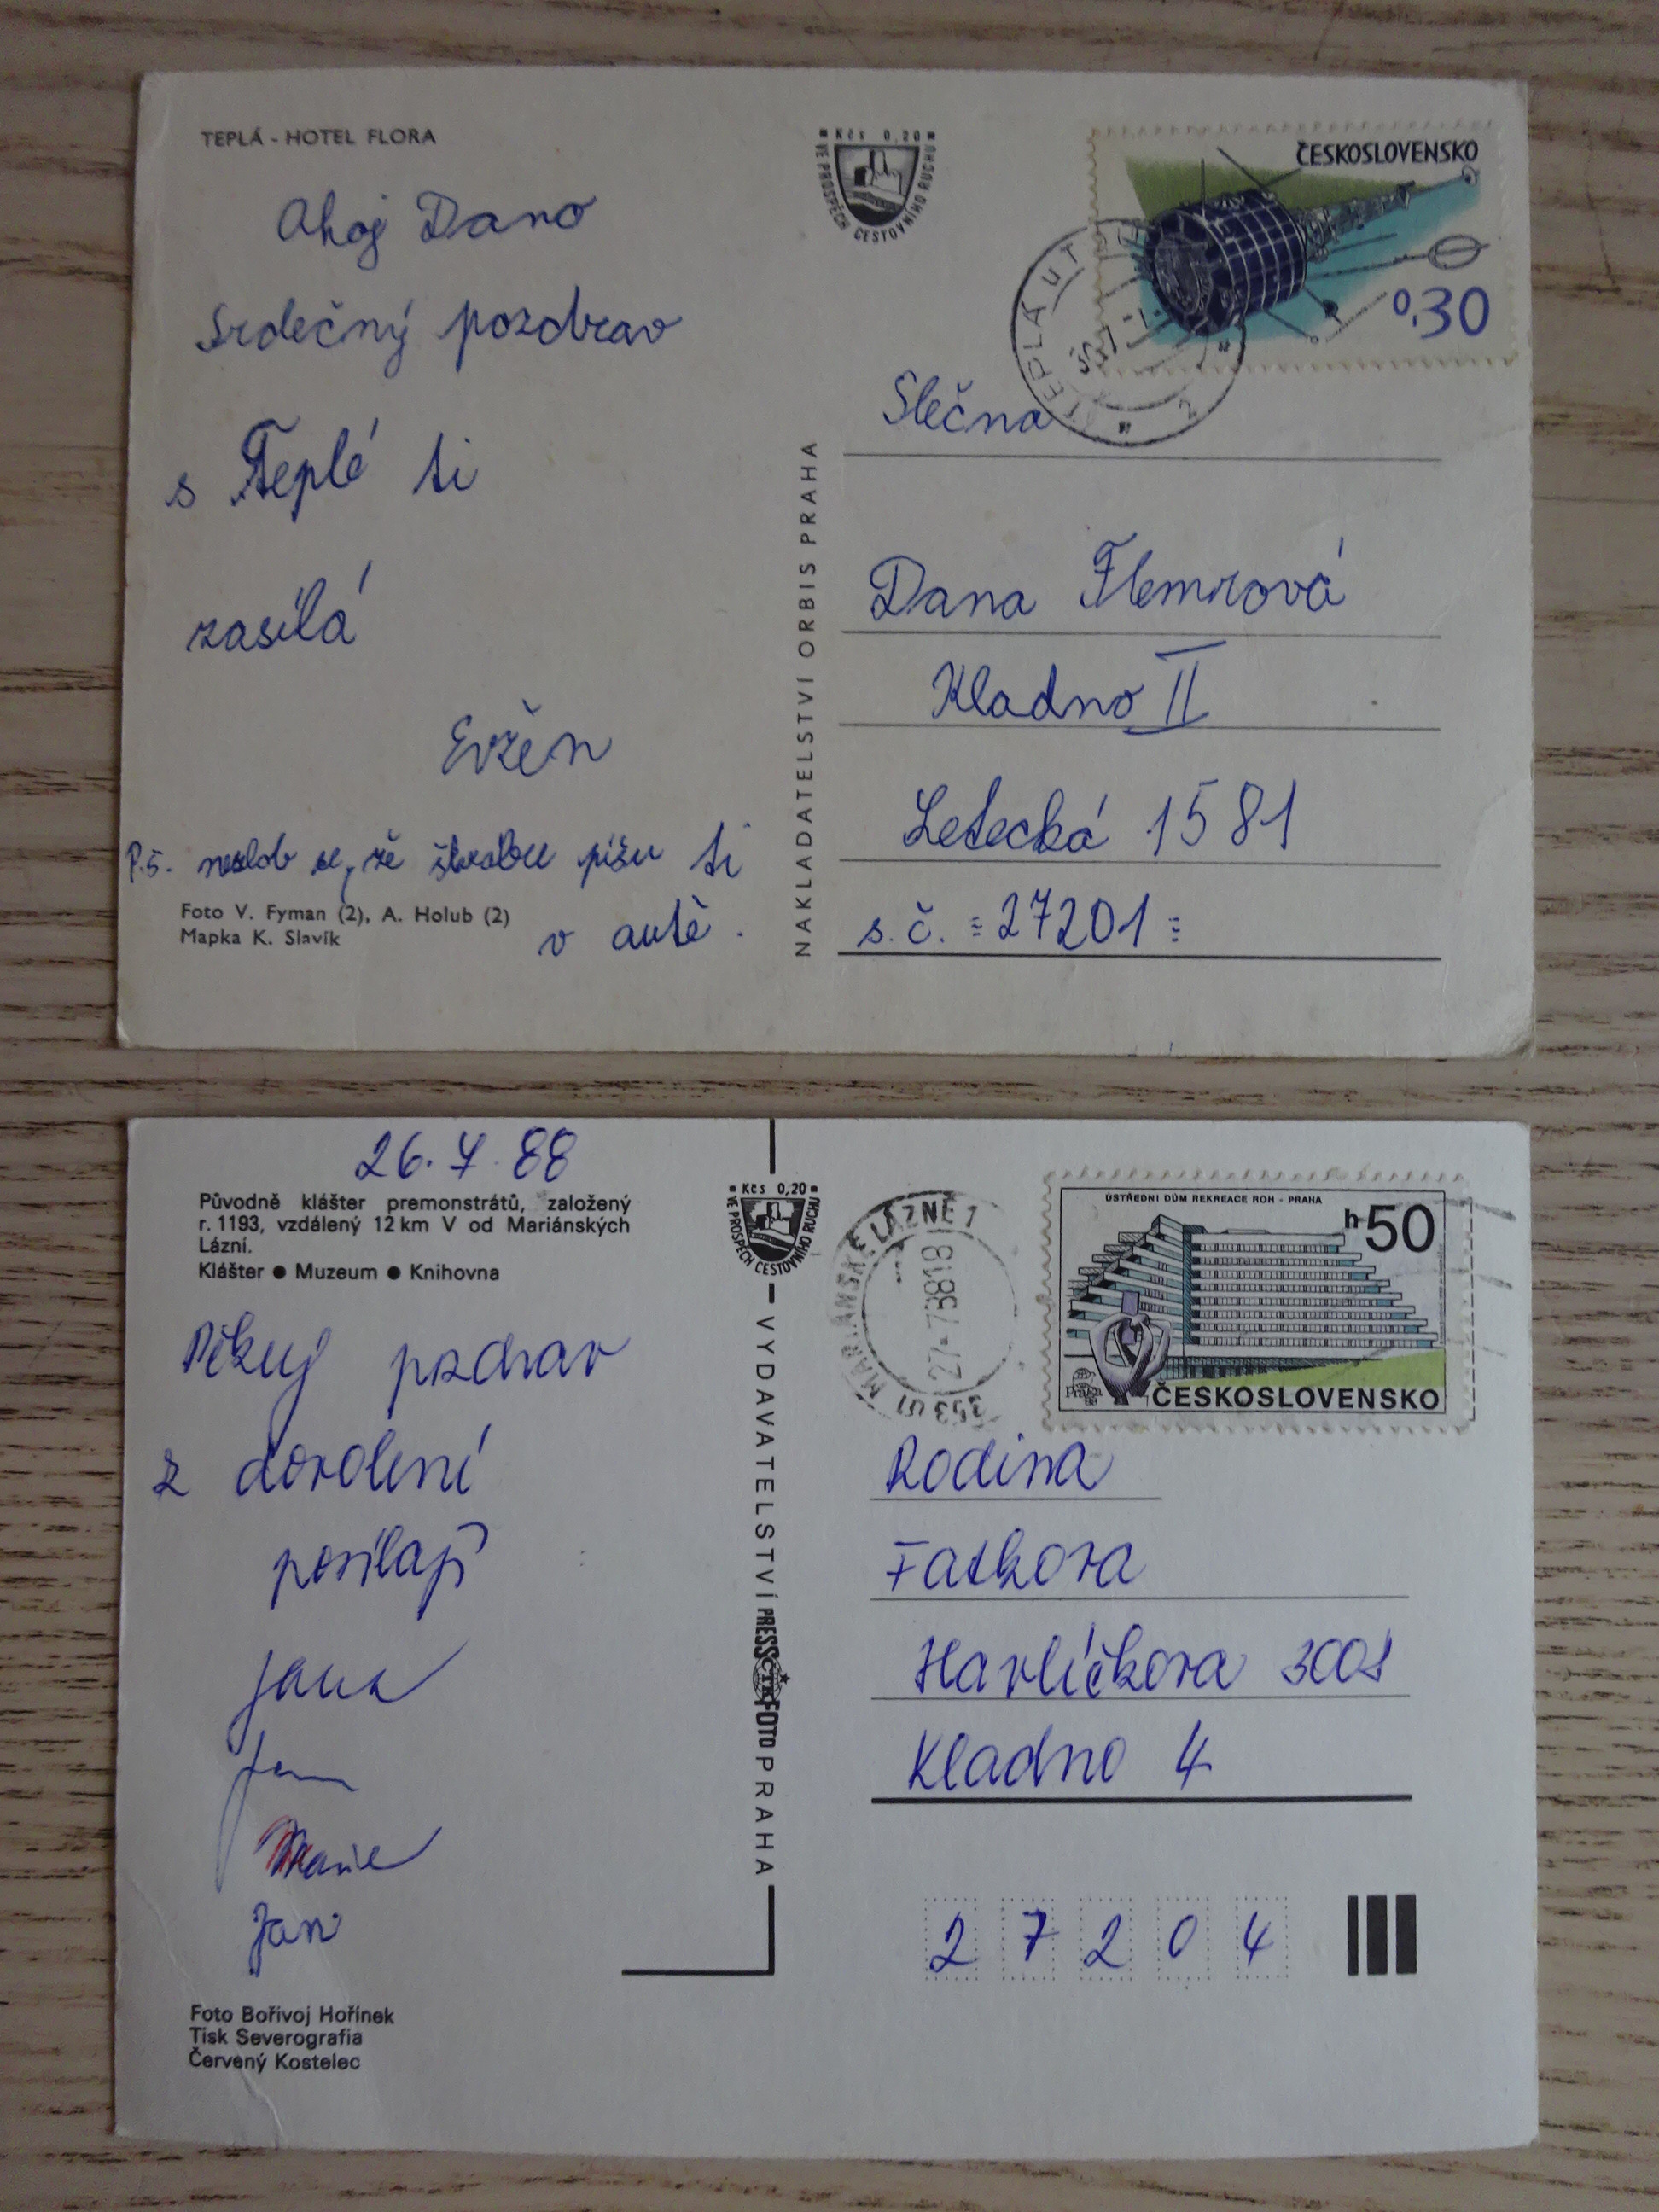 TEPLÁ - HOTEL FLORA
Kčs 0,20
VE PROSPĚCH CESTOVNÍHO RUCHU
ČESKOSLOVENSKO
0,30
TEPLÁ U T
Ahoj Dano
Srdečný pozdrav
s Teplé ti
zasílá
Evžen
P.S. nezlob se, že škrabu píšu ti
v autě.
Foto V. Fyman (2), A. Holub (2)
Mapka K. Slavík
NAKLADATELSTVÍ ORBIS PRAHA
Slečna
Dana Flemrová
Kladno II
Letecká 1581
s. č. 27201
26. 7. 88
Původně klášter premonstrátů, založený
r. 1193, vzdálený 12 km V od Mariánských
Lázní.
Klášter ● Muzeum ● Knihovna
Kčs 0,20
VE PROSPĚCH CESTOVNÍHO RUCHU
MARIÁNSKÉ LÁZNĚ 1
27.-7.88 18
353 01
ÚSTŘEDNÍ DŮM REKREACE ROH - PRAHA
h50
Praga
88
ČESKOSLOVENSKO
Pěkný pozdrav
z dovolení
posílají
Jana
Marie
Jan
Foto Bořivoj Hořínek
Tisk Severografia
Červený Kostelec
VYDAVATELSTVÍ PRESSFOTO PRAHA
ČTK
Rodina
Fatkova
Havlíčkova 3001
Kladno 4
27204